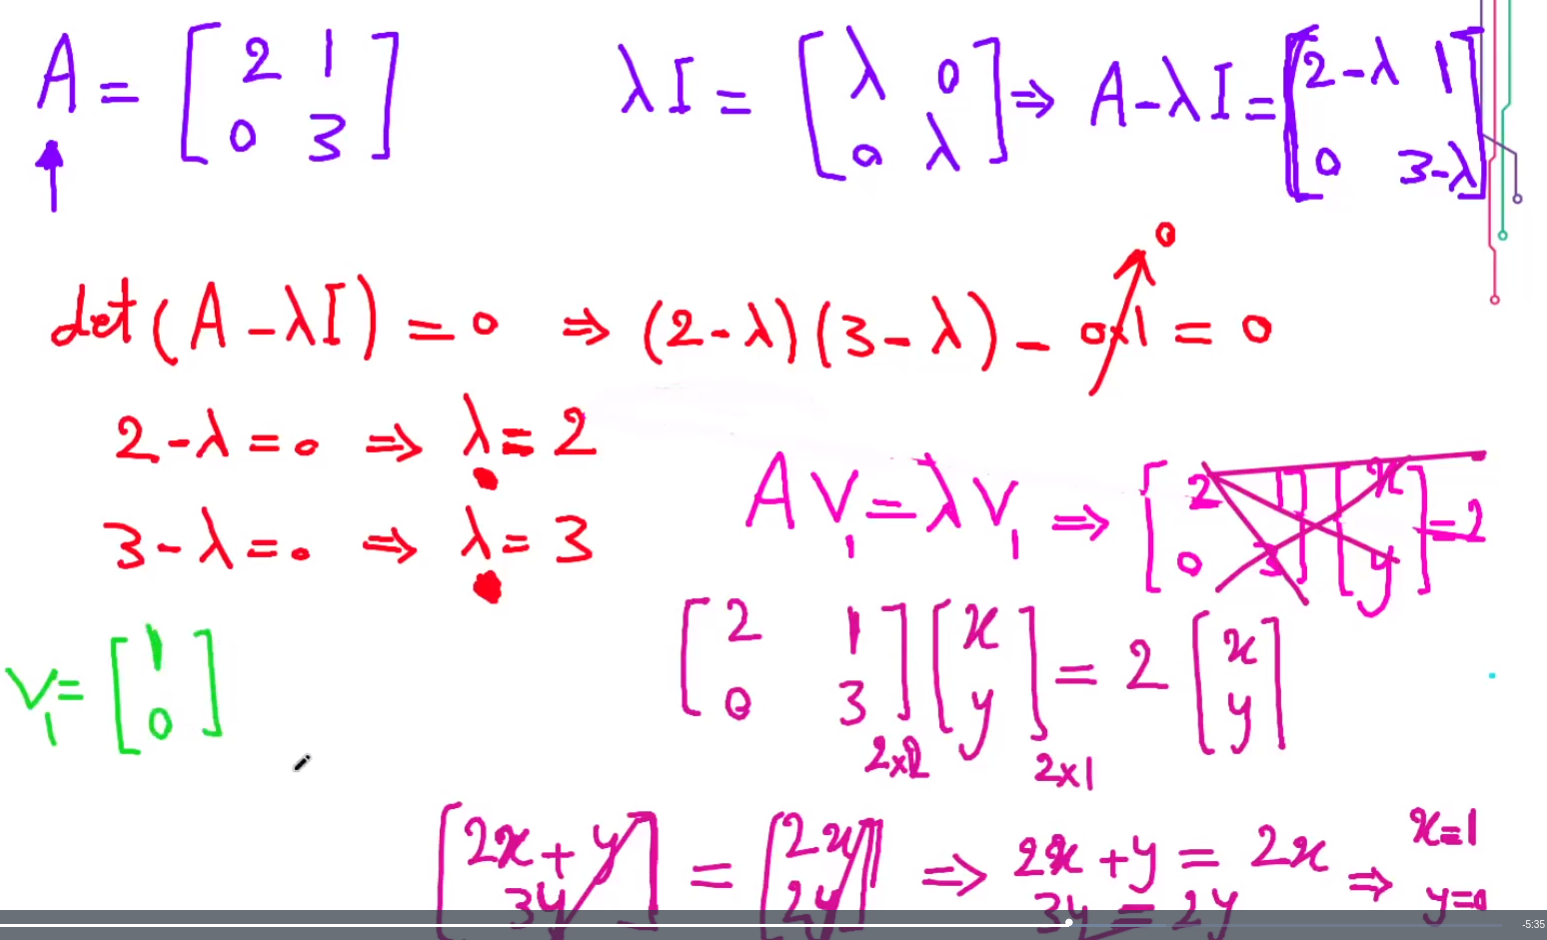 A = [ 2 1 ; 0 3 ]   λI = [ λ 0 ; 0 λ ] ⇒ A-λI = [ 2-λ 1 ; 0 3-λ ]
0
det(A-λI) = 0 ⇒ (2-λ)(3-λ) - 0x1 = 0
2-λ = 0 ⇒ λ = 2
3-λ = 0 ⇒ λ = 3
AV₁ = λV₁ ⇒ [ 2 1 ; 0 3 ] [ x ; y ] = 2
[ 2 1 ; 0 3 ] [ x ; y ] = 2 [ x ; y ]
2x2 2x1
V₁ = [ 1 ; 0 ]
[ 2x+y ; 3y ] = [ 2x ; 2y ] ⇒ 2x+y = 2x ⇒ x=1
3y = 2y y=0
-5:35